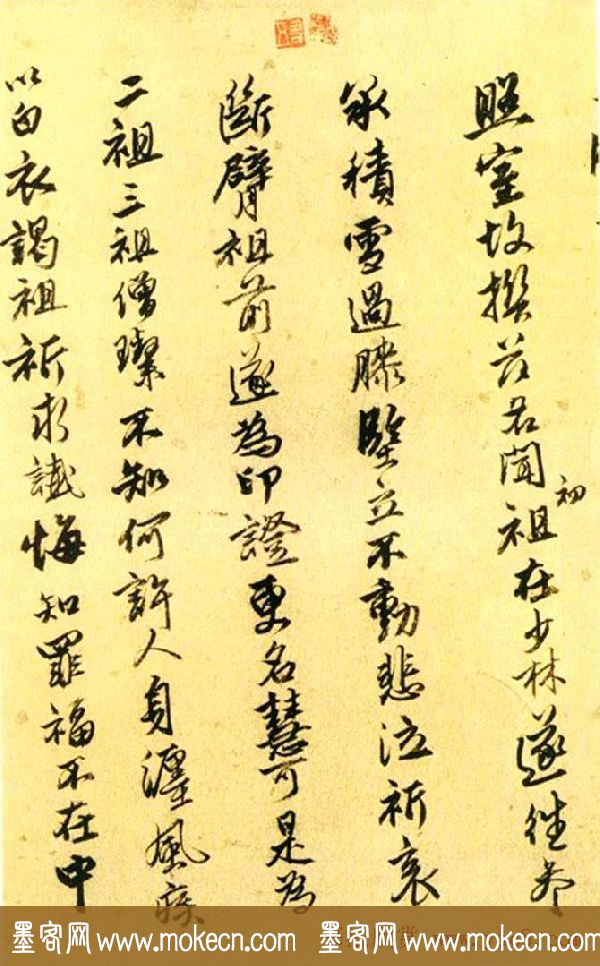 照室故撰茲名聞初祖在少林遂往參
承積雪過膝堅立不動悲泣祈哀
斷臂祖前遂為印證更名慧可是為
二祖三祖僧璨不知何許人身纏風疾
以白衣謁祖祈求懺悔知罪福不在中
墨客网www.mokecn.com 墨客网www.mokecn.com